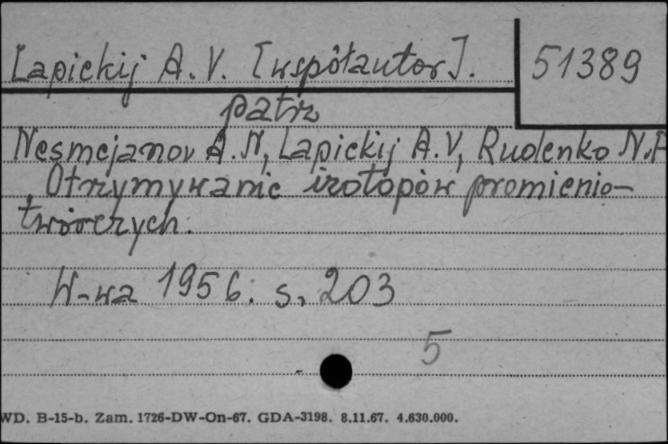 Łapickij A. V. [współautor].
51389
patrz
Nesmejanov A. N, Łapickij A. V, Rudenko N. P
Otrzymywanie izotopów promienio-
twórczych.
W-wa 1956. s. 203
5
WD. B-15-b. Zam. 1726-DW-On-67. GDA-3198. 8.11.67. 4.630.000.